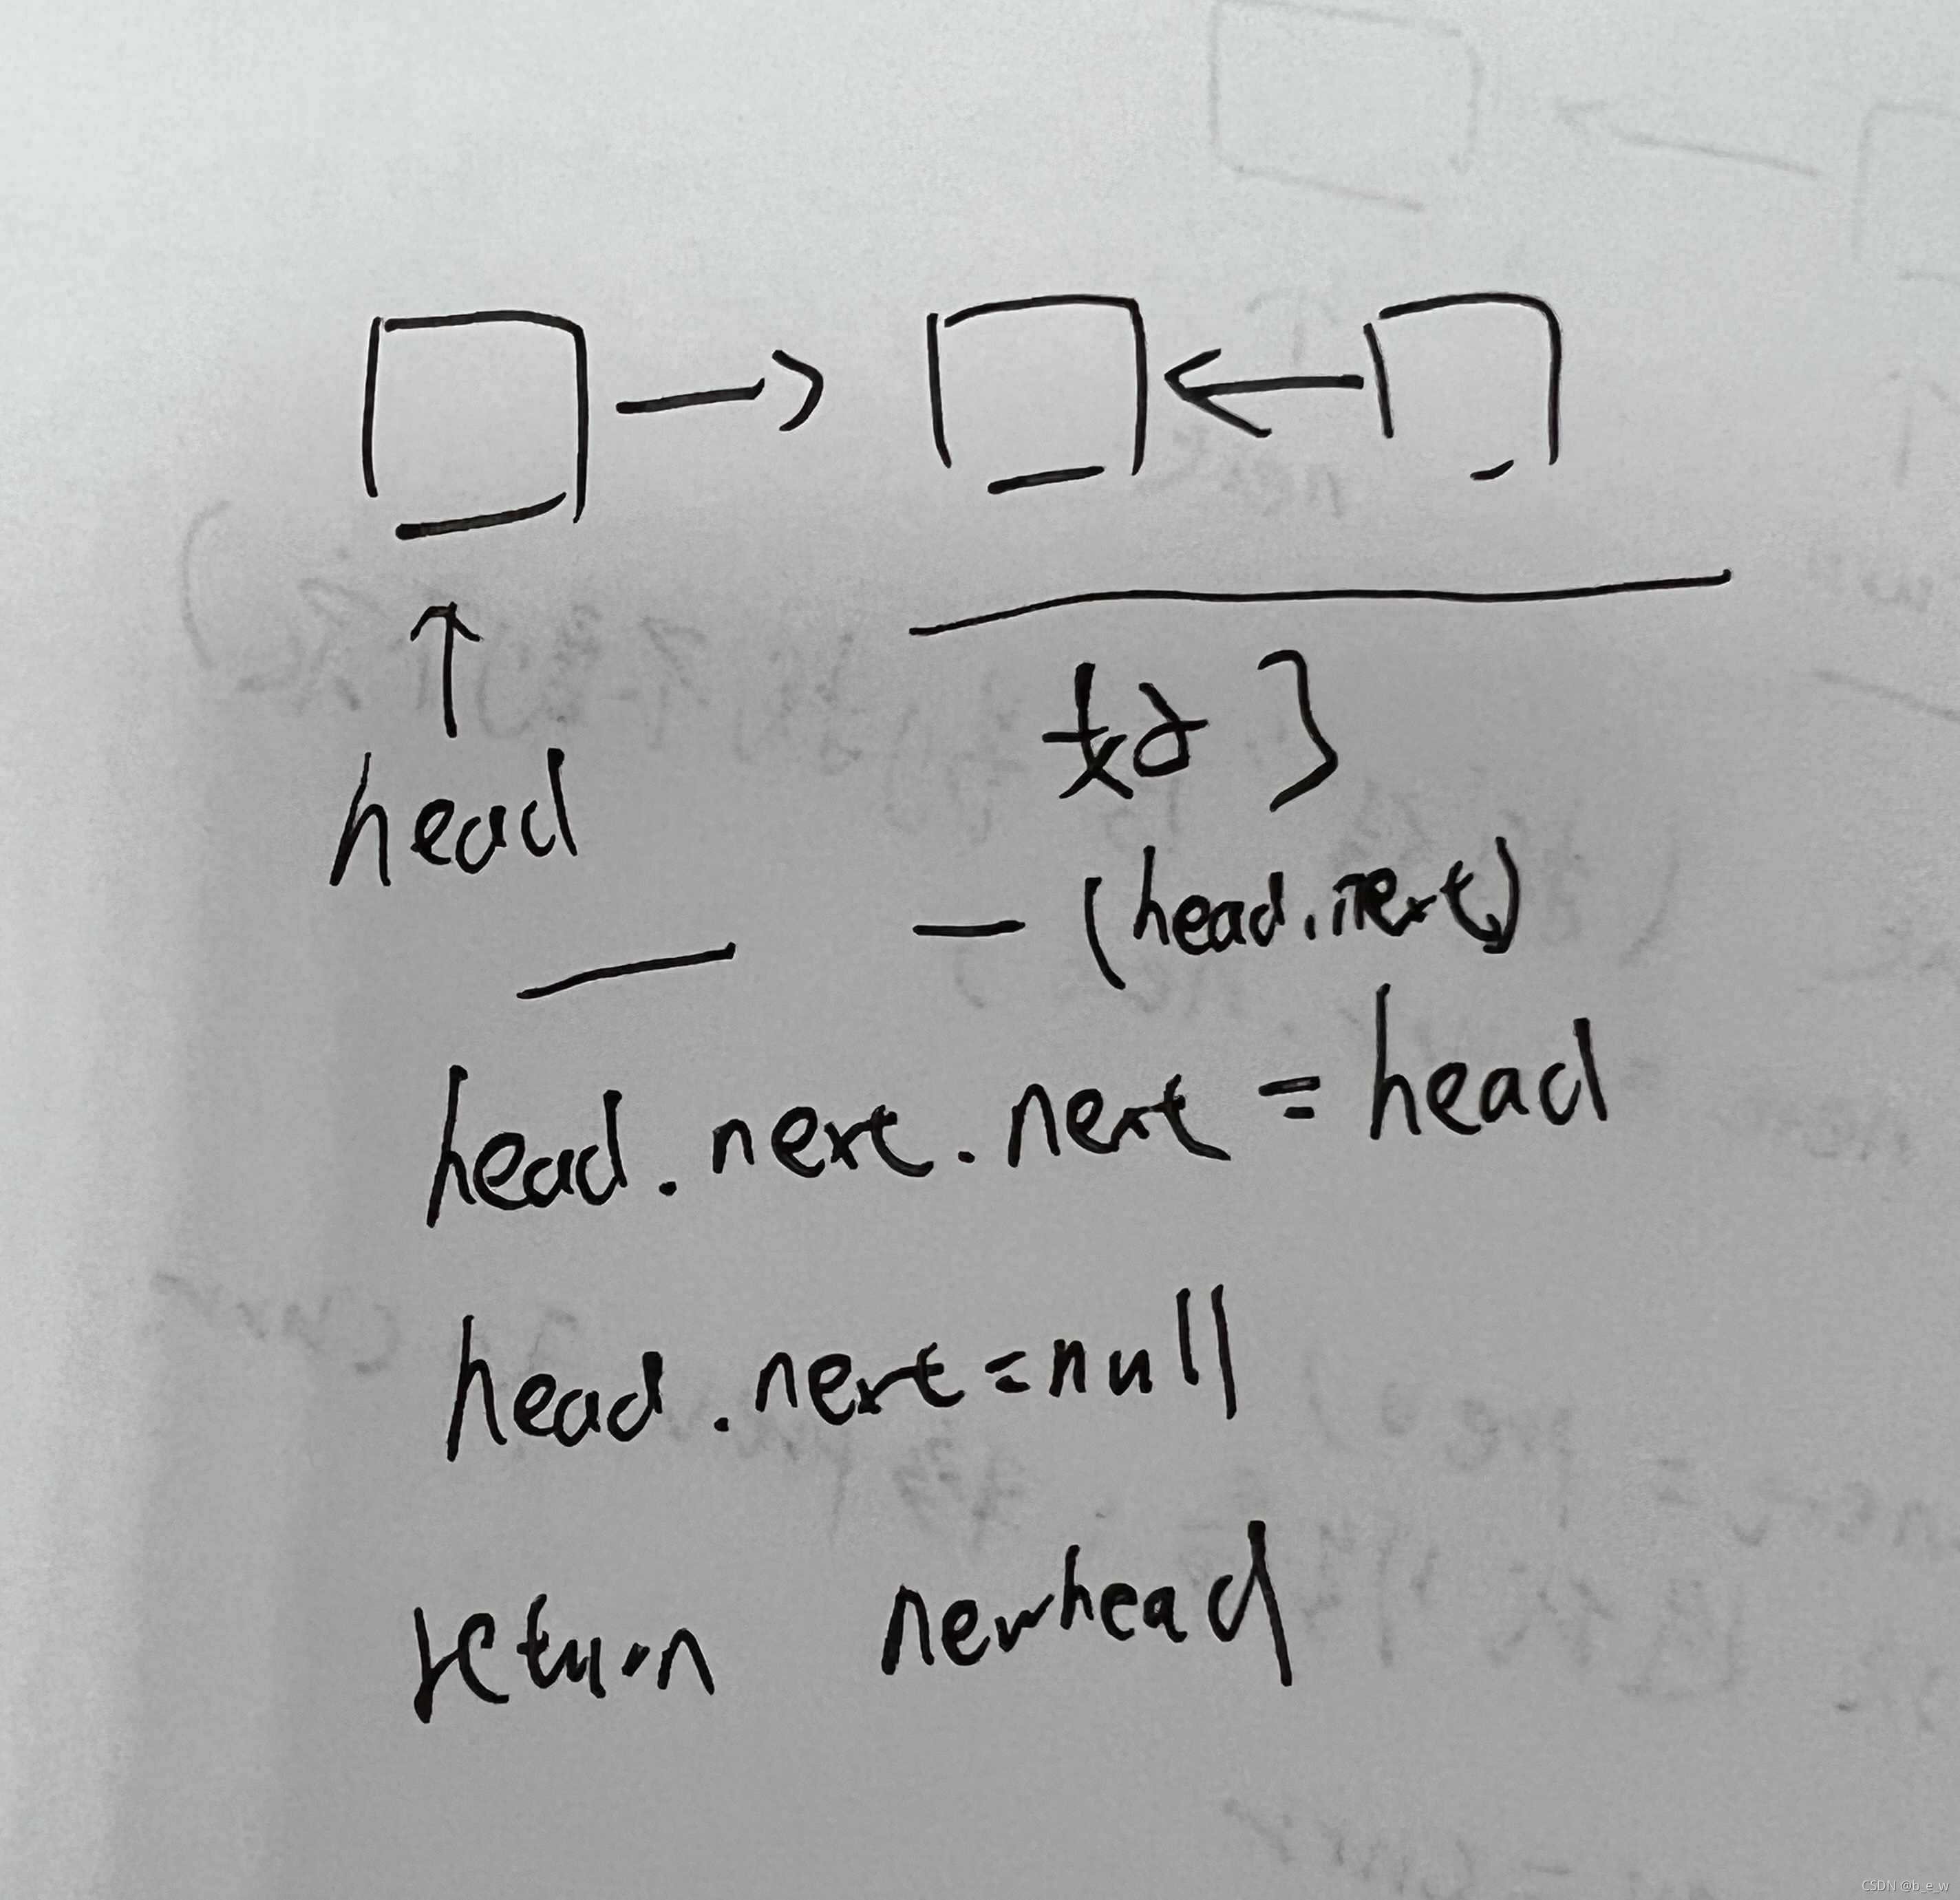 head
— — (head.next)
head.next.next = head
head.next=null
return newhead
CSDN @b_e_w